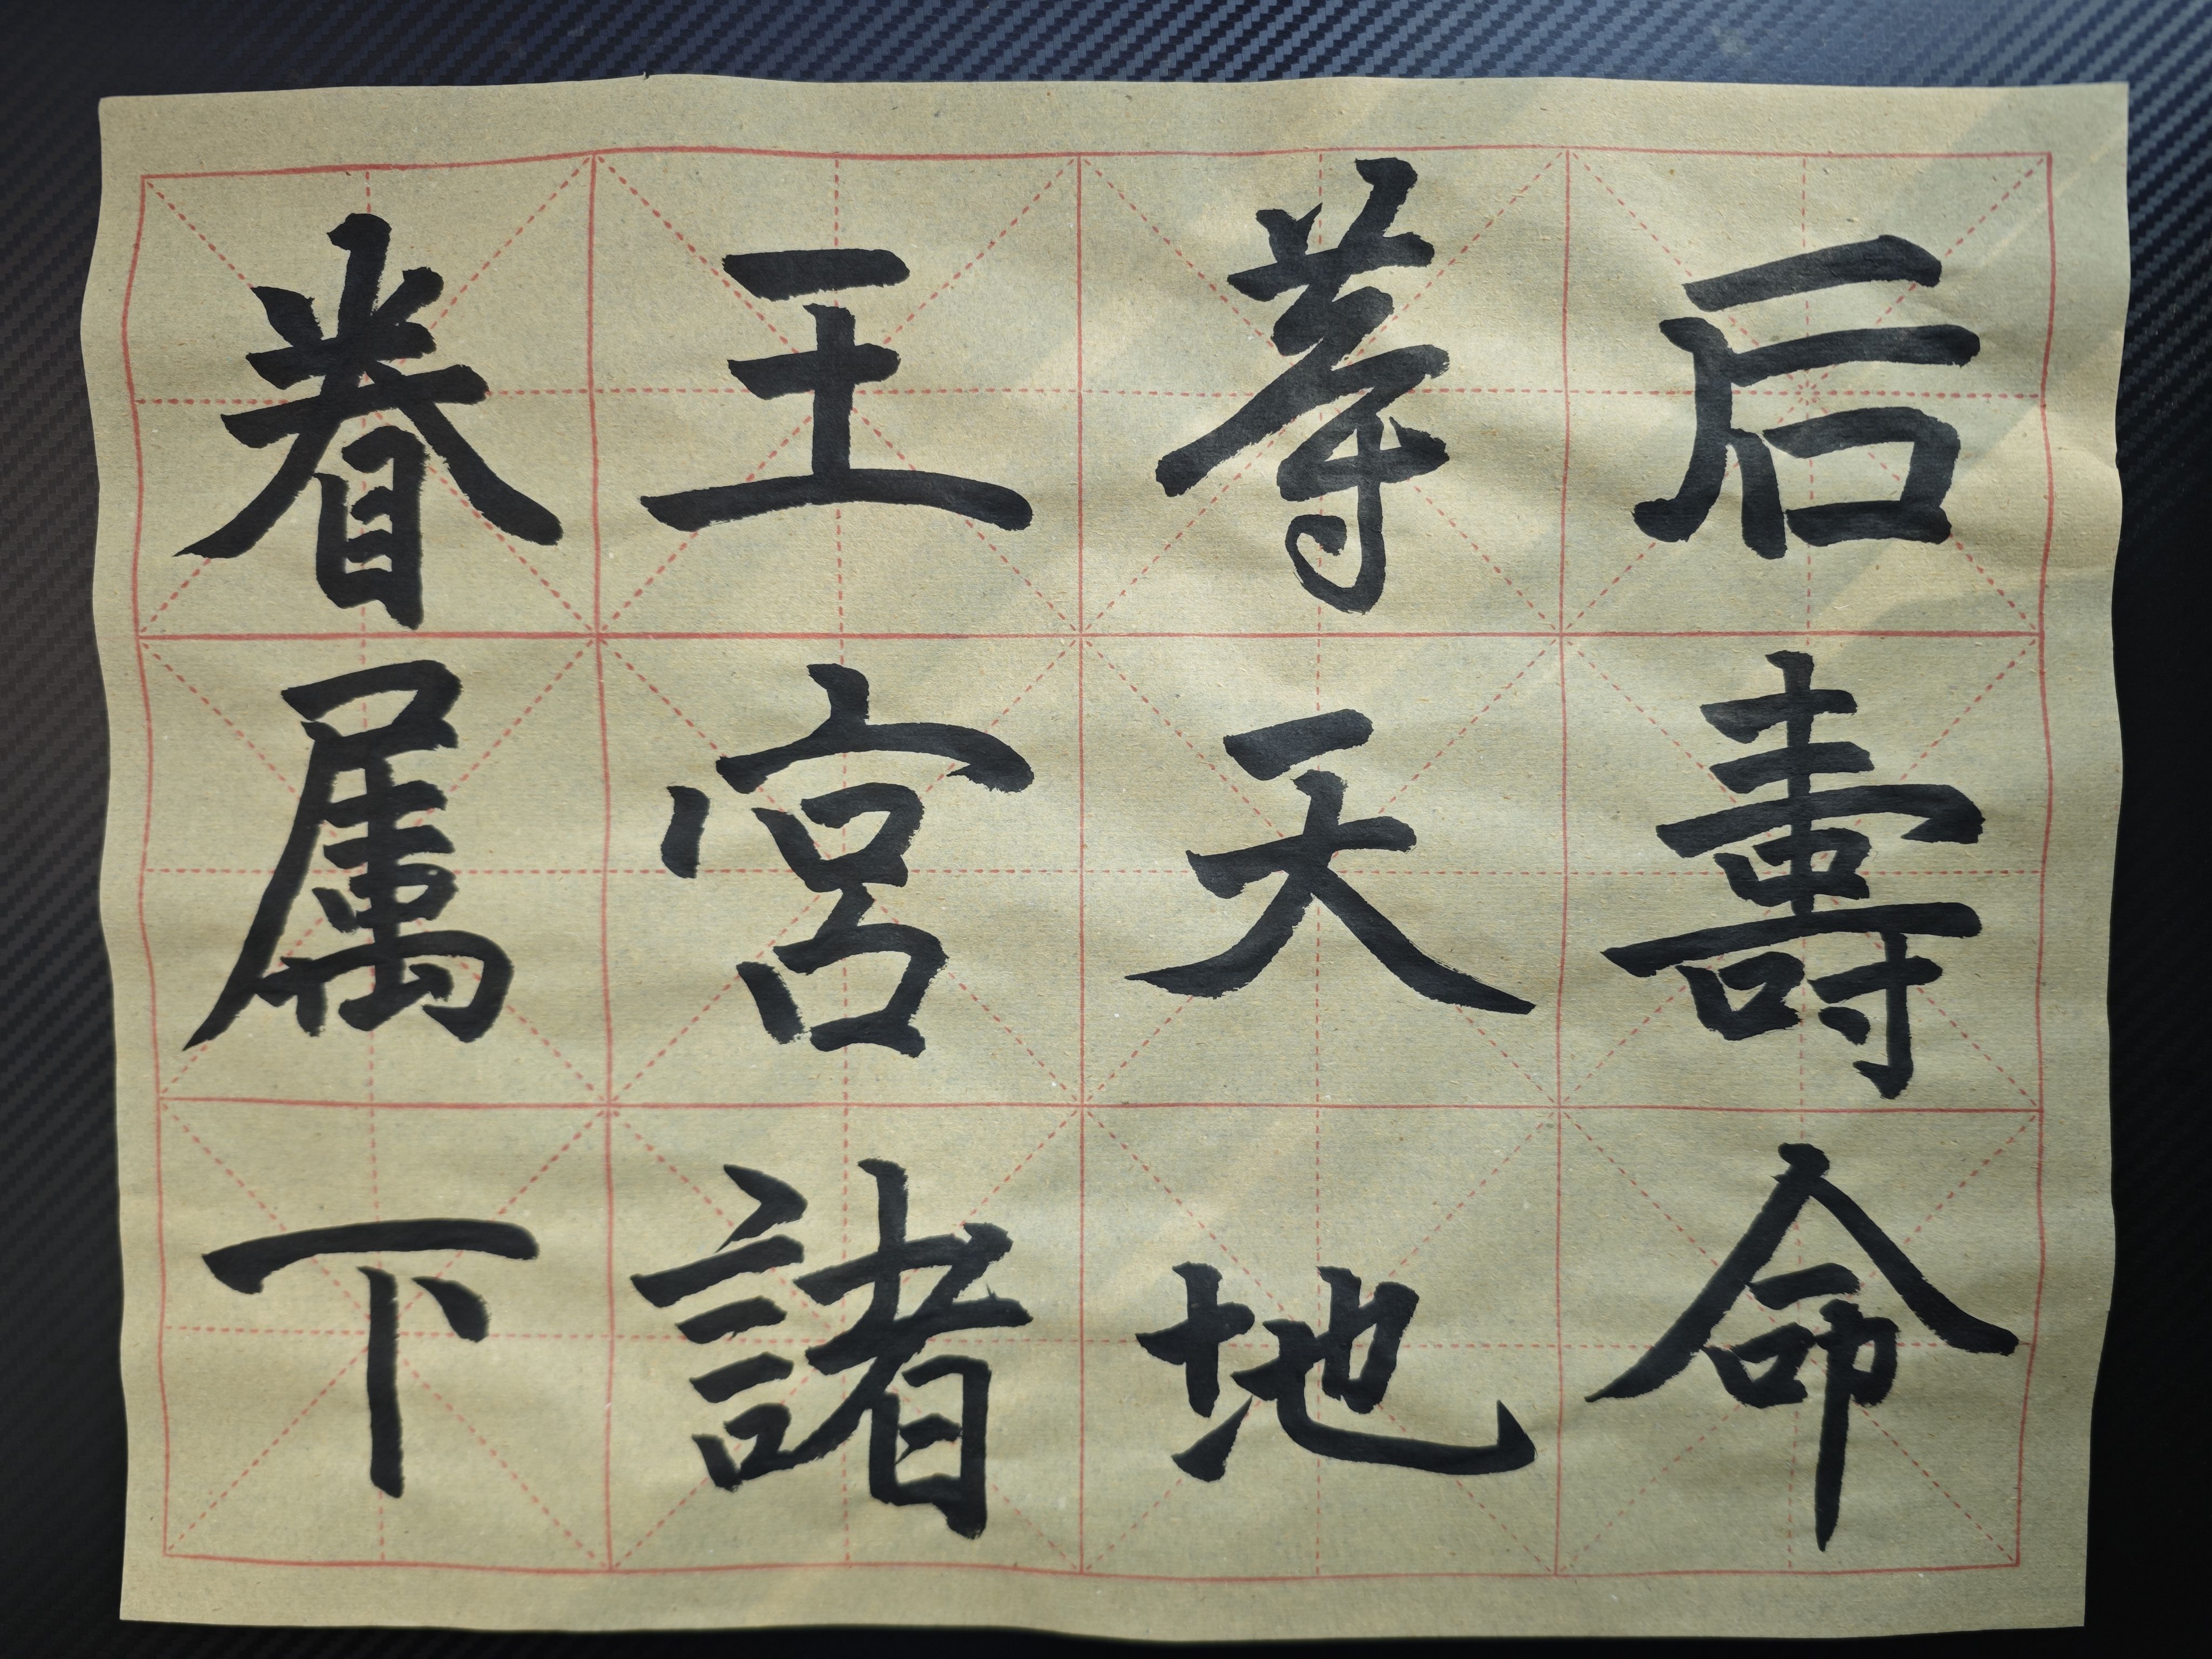 后壽命
等天地
王宮諸
眷属下